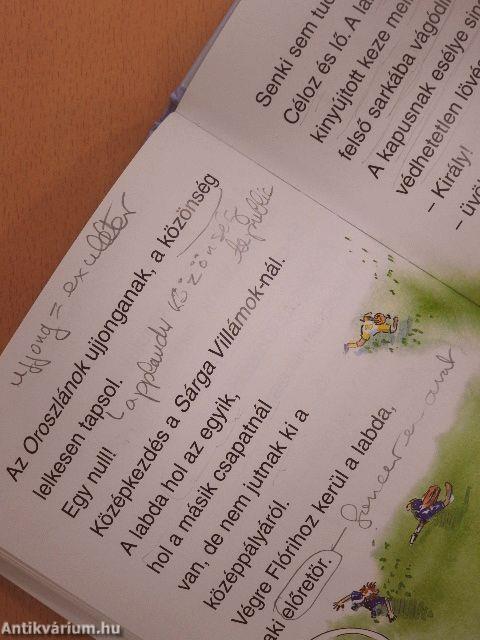 Senki sem tud
Céloz és lő. A la
kinyújtott keze mel
felső sarkába vágódi
A kapusnak esélye sin
védhetetlen lövés
– Király!
– üvöl
ujjong = exulter
Az Oroszlánok ujjonganak, a közönség
közönség
le public
lelkesen tapsol.
applaudir
Egy null!
Középkezdés a Sárga Villámok-nál.
A labda hol az egyik,
hol a másik csapatnál
van, de nem jutnak ki a
középpályáról.
Végre Flórihoz kerül a labda,
aki előretör.
foncer en avant
Antikvárium.hu